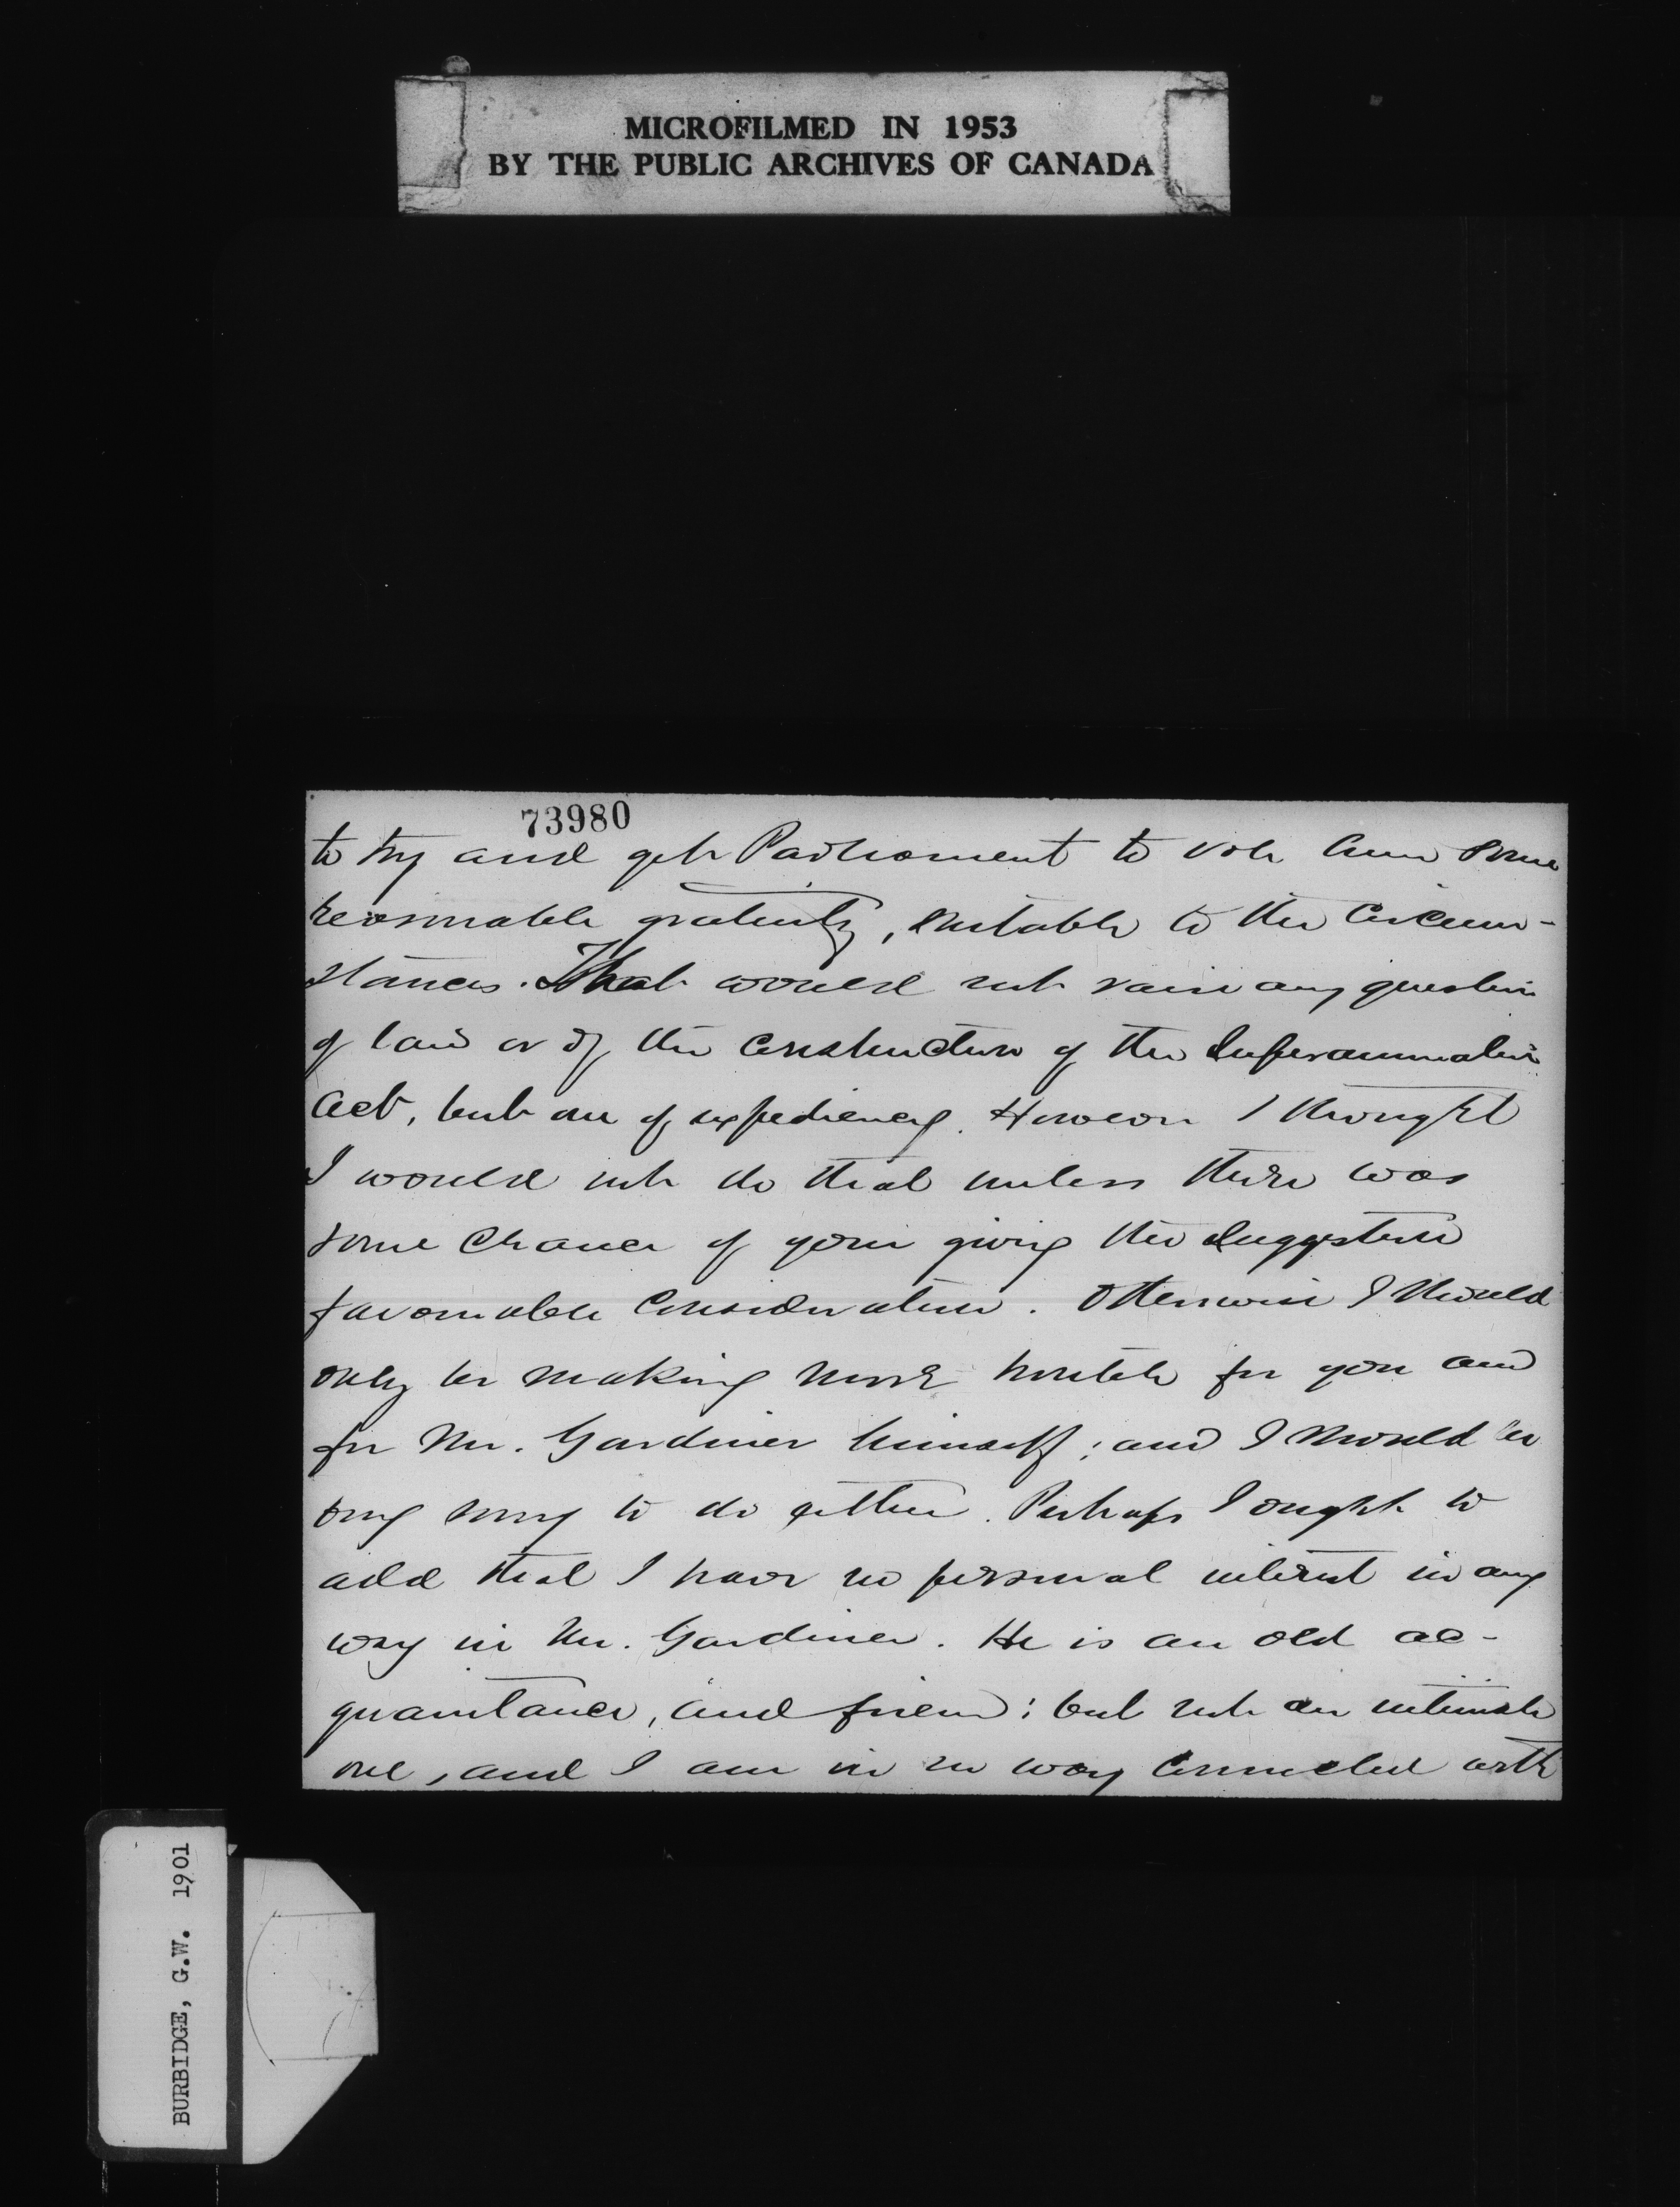 MICROFILMED IN 1953
BY THE PUBLIC ARCHIVES OF CANADA
73980
to try and get Parliament to vote him some
reasonable gratuity, suitable to the circum-
stances. That would not raise any question
of law or of the construction of the Superannuation
Act, but one of expediency. However I thought
I would not do that unless there was
some chance of your giving the suggestion
favourable consideration. Otherwise I should
only be making more trouble for you and
for Mr. Gardiner himself; and I should be
very sorry to do either. Perhaps I ought to
add that I have no personal interest in any
way in Mr. Gardiner. He is an old ac-
quaintance, and friend; but not an intimate
one, and I am in no way connected with
BURBIDGE, G.W. 1901